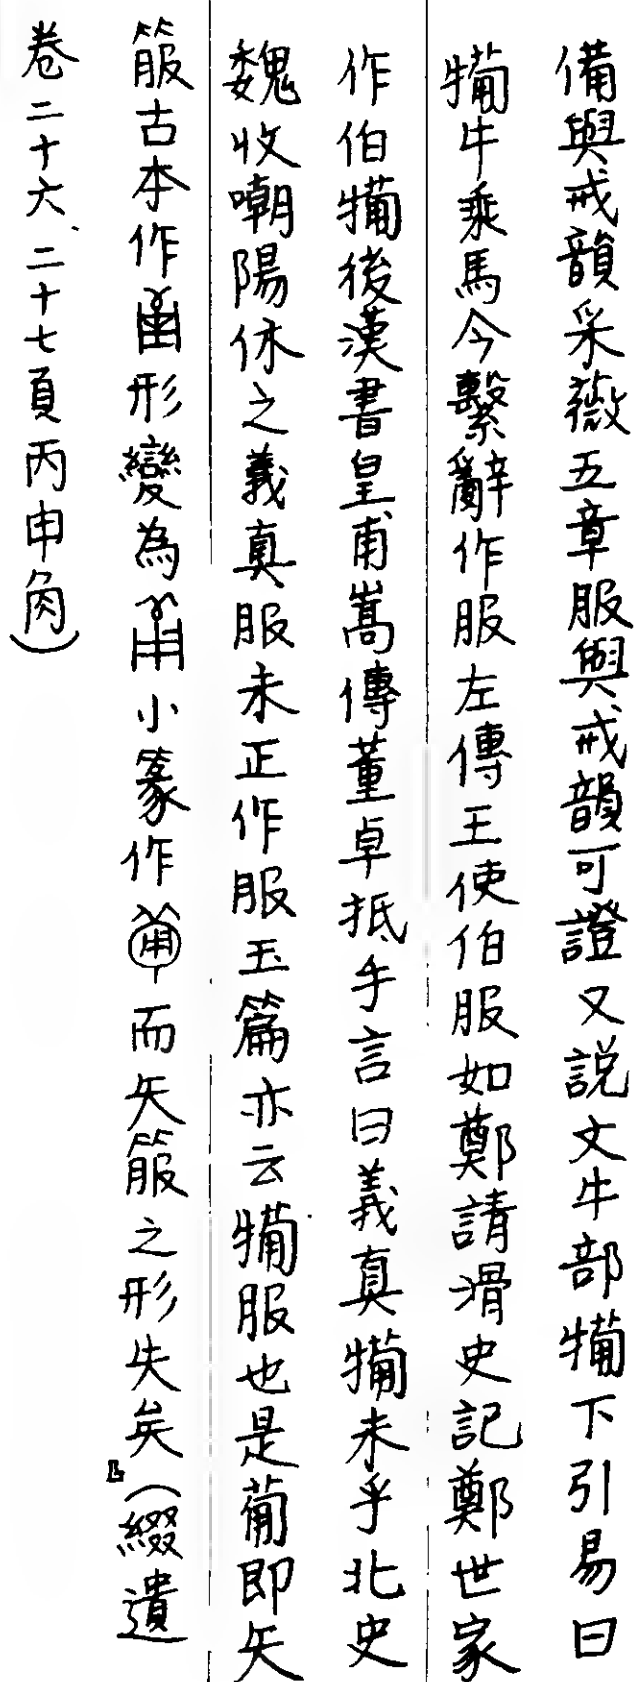 備與戒韻采薇五章服與戒韻可證又説文牛部犕下引易曰
犕牛乘馬今繫辭作服左傳王使伯服如鄭請滑史記鄭世家
作伯犕後漢書皇甫嵩傳董卓抵手言曰義真犕未乎北史
魏收嘲陽休之義真服未正作服玉篇亦云犕服也是葡即矢
箙古本作形變為小篆作而矢箙之形失矣」(綴遺
卷二十六、二十七頁丙申角)